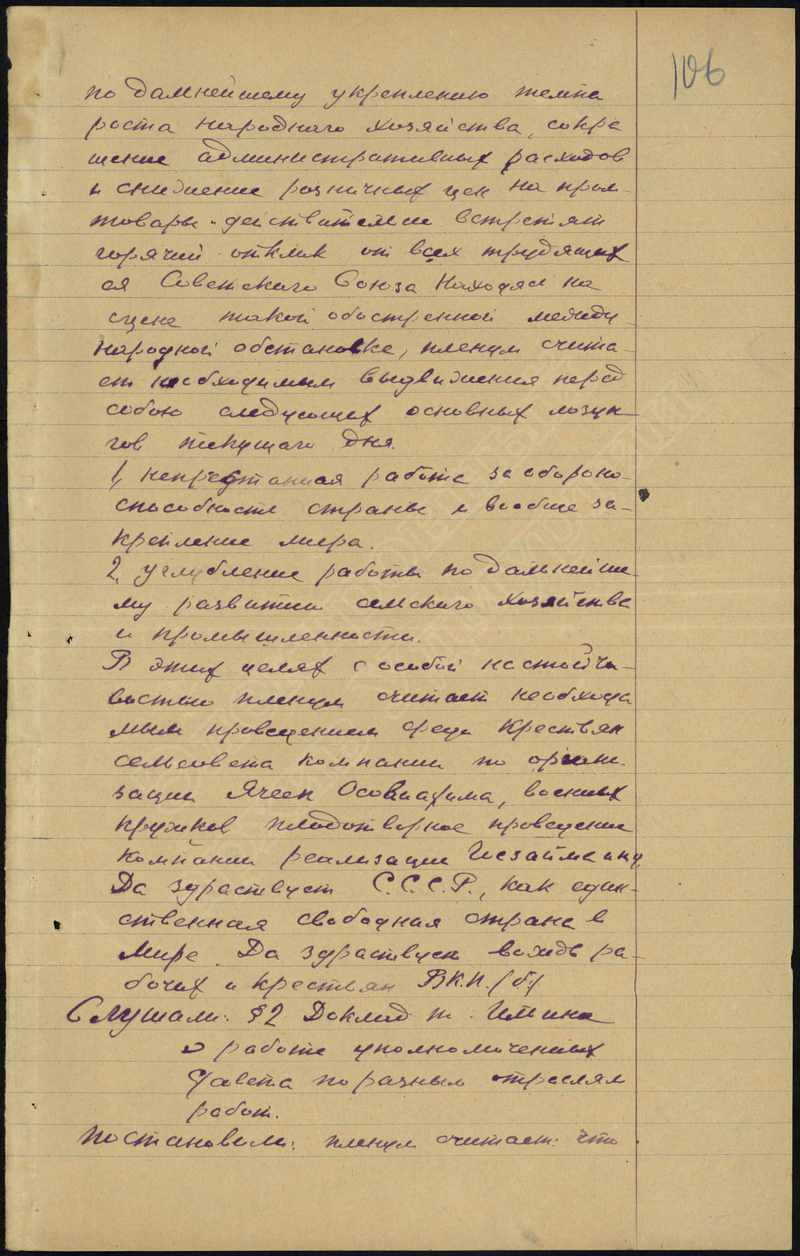 106
по дальнейшему укреплению темпа
роста народного хозяйства, сокра
щение административных расходов
и снижение розничных цен на пром-
товары - действительно встретят
горячий отклик от всех трудящих
ся Советского Союза Находясь на
сцене такой обостренной между
народной обстановке, пленум счита-
ет необходимым выдвижения перед
собою следующих основных лозун-
гов текущего дня.
1, непрестанная работа за обороно-
способности страны и вообще за-
крепление мира.
2, углубление работы по дальнейше-
му развитии сельского хозяйства
и промышленности.
В этих целях с особой настойчи-
востью пленум считает необходи
мым проведением среди крестьян
сельсовета компании по органи-
зации Ячеек Осовиахима, военных
кружков плодотворное проведение
компании реализации Госзайма
Да здраствует С.С.С.Р., как един-
ственная свободная страна в
мире. Да здраствует вождь ра-
бочих и крестьян В.К.П./б/
Слушали: §2 Доклад т.
о работе уполномоченных
совета по разным отраслям
работ.
Постановили: пленум считает: что